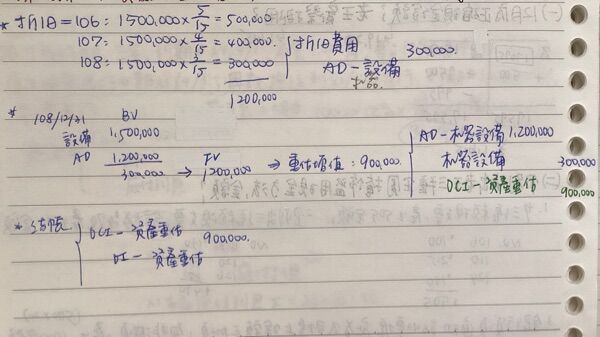 * 折旧= 106: 1500,000 × 5/15 = 500,000
107: 1500,000 × 4/15 = 400,000
108: 1500,000 × 3/15 = 300,000
1200,000
折旧費用 300,000
AD-設備
机器
* 108/12/31 BV
設備 1,500,000
AD 1,200,000
300,000 → FV 1200,000 ⇒ 重估增值: 900,000
AD-机器設備 1,200,000
机器設備 300,000
OCI-資產重估 900,000
* 结帳 OCI-資產重估 900,000
OE-資產重估